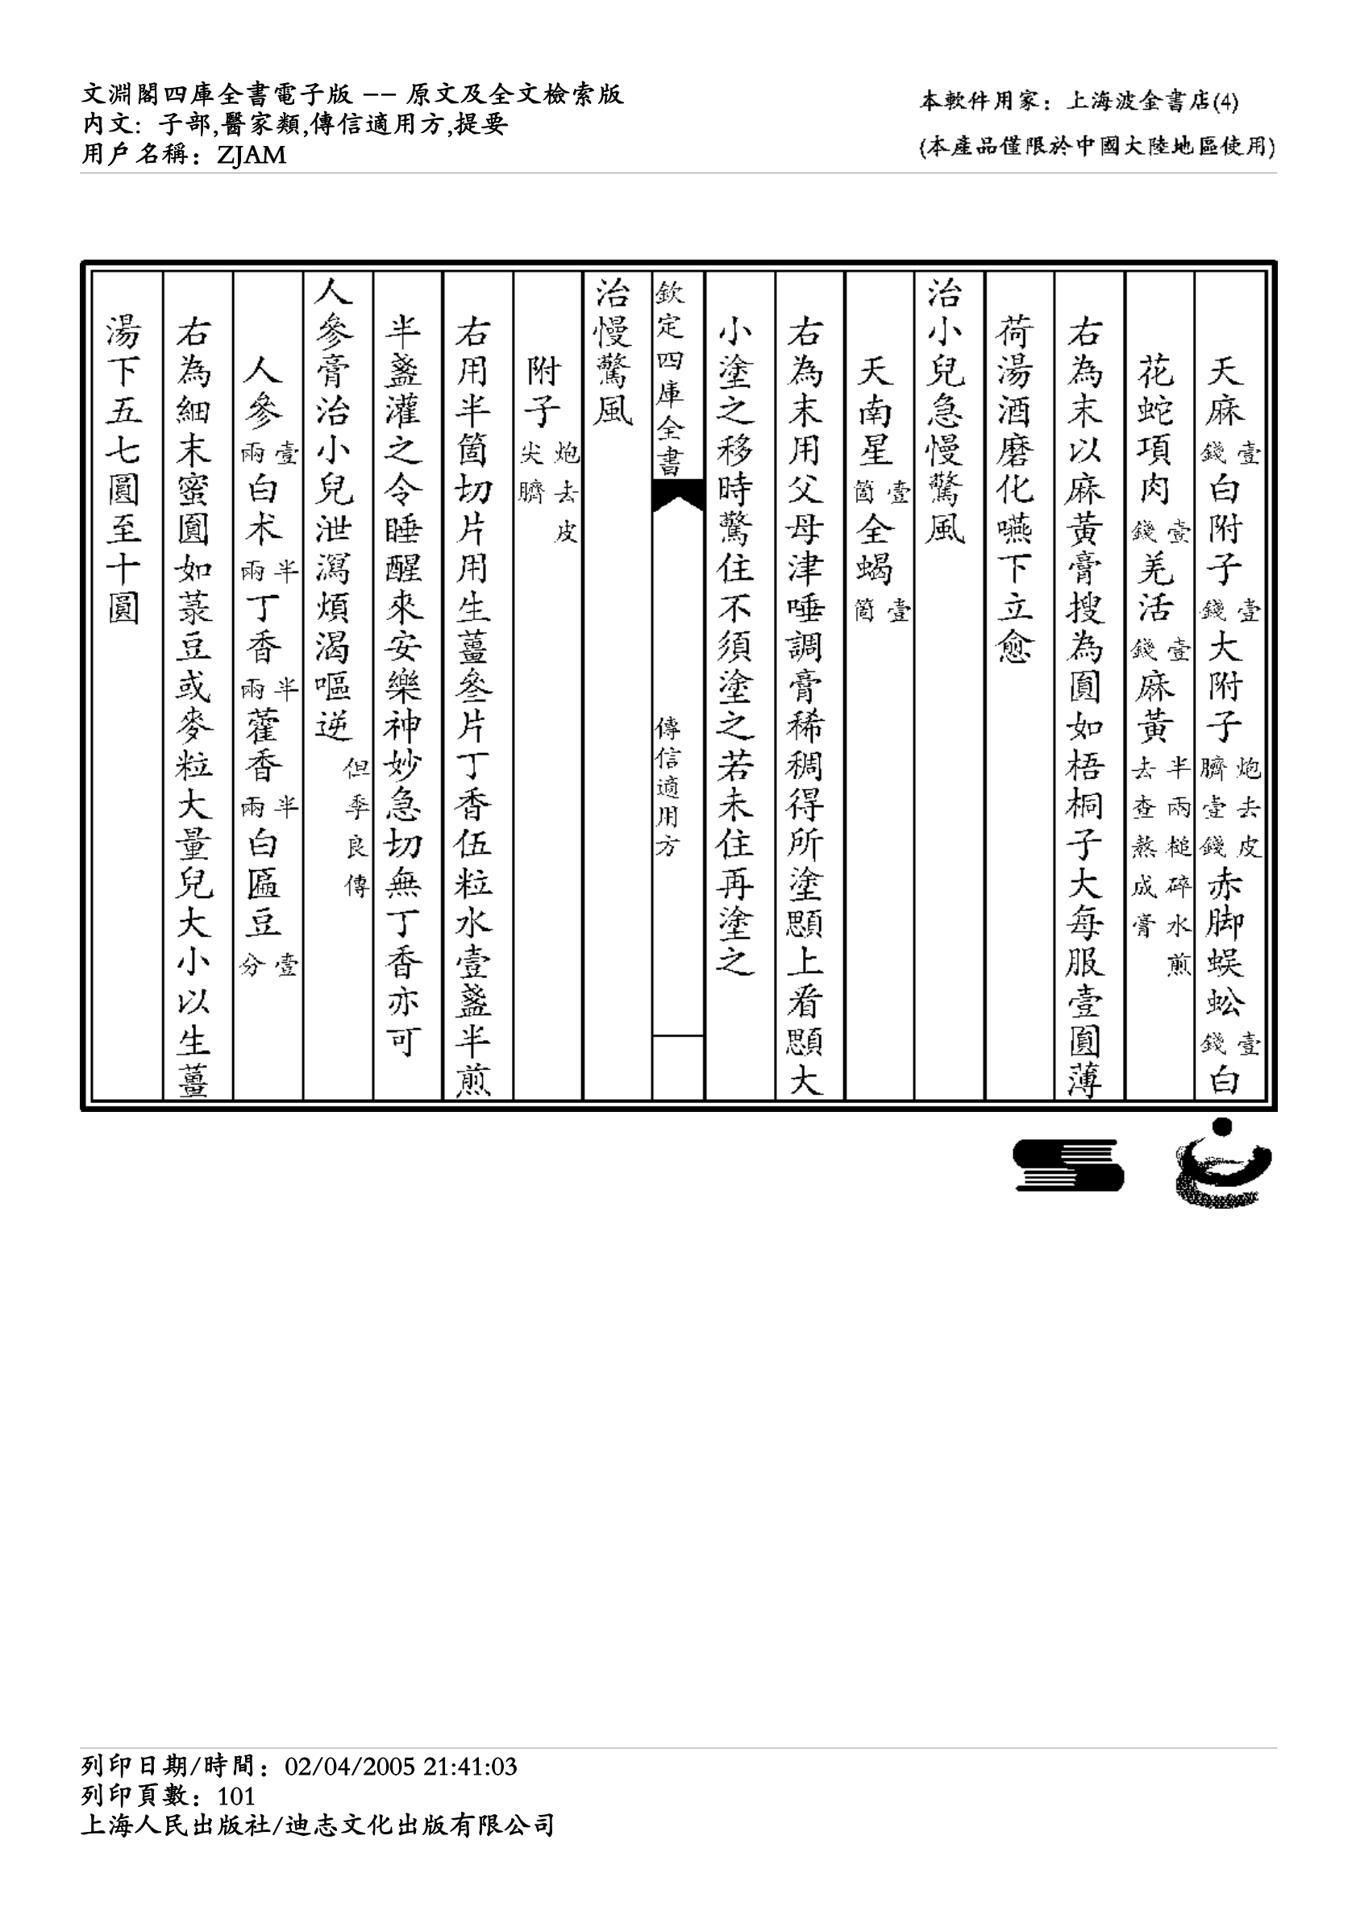 文淵閣四庫全書電子版 -- 原文及全文檢索版
內文: 子部,醫家類,傳信適用方,提要
用戶名稱: ZJAM
本軟件用家: 上海波金書店(4)
(本產品僅限於中國大陸地區使用)
天麻壹錢白附子壹錢大附子炮去皮臍壹錢赤脚蜈蚣壹錢白
花蛇項肉壹錢羌活壹錢麻黃半兩槌碎水煎去查熬成膏
右為末以麻黃膏搜為圓如梧桐子大每服壹圓薄
荷湯酒磨化嚥下立愈
治小兒急慢驚風
天南星壹箇全蝎壹箇
右為末用父母津唾調膏稀稠得所塗顖上看顖大
小塗之移時驚住不須塗之若未住再塗之
欽定四庫全書
傳信適用方
治慢驚風
附子炮去皮尖臍
右用半箇切片用生薑叄片丁香伍粒水壹盞半煎
半盞灌之令睡醒來安樂神妙急切無丁香亦可
人參膏治小兒泄瀉煩渴嘔逆但季良傳
人參壹兩白术半兩丁香半兩藿香半兩白匾豆壹分
右為細末蜜圓如菉豆或麥粒大量兒大小以生薑
湯下五七圓至十圓
列印日期/時間: 02/04/2005 21:41:03
列印頁數: 101
上海人民出版社/迪志文化出版有限公司